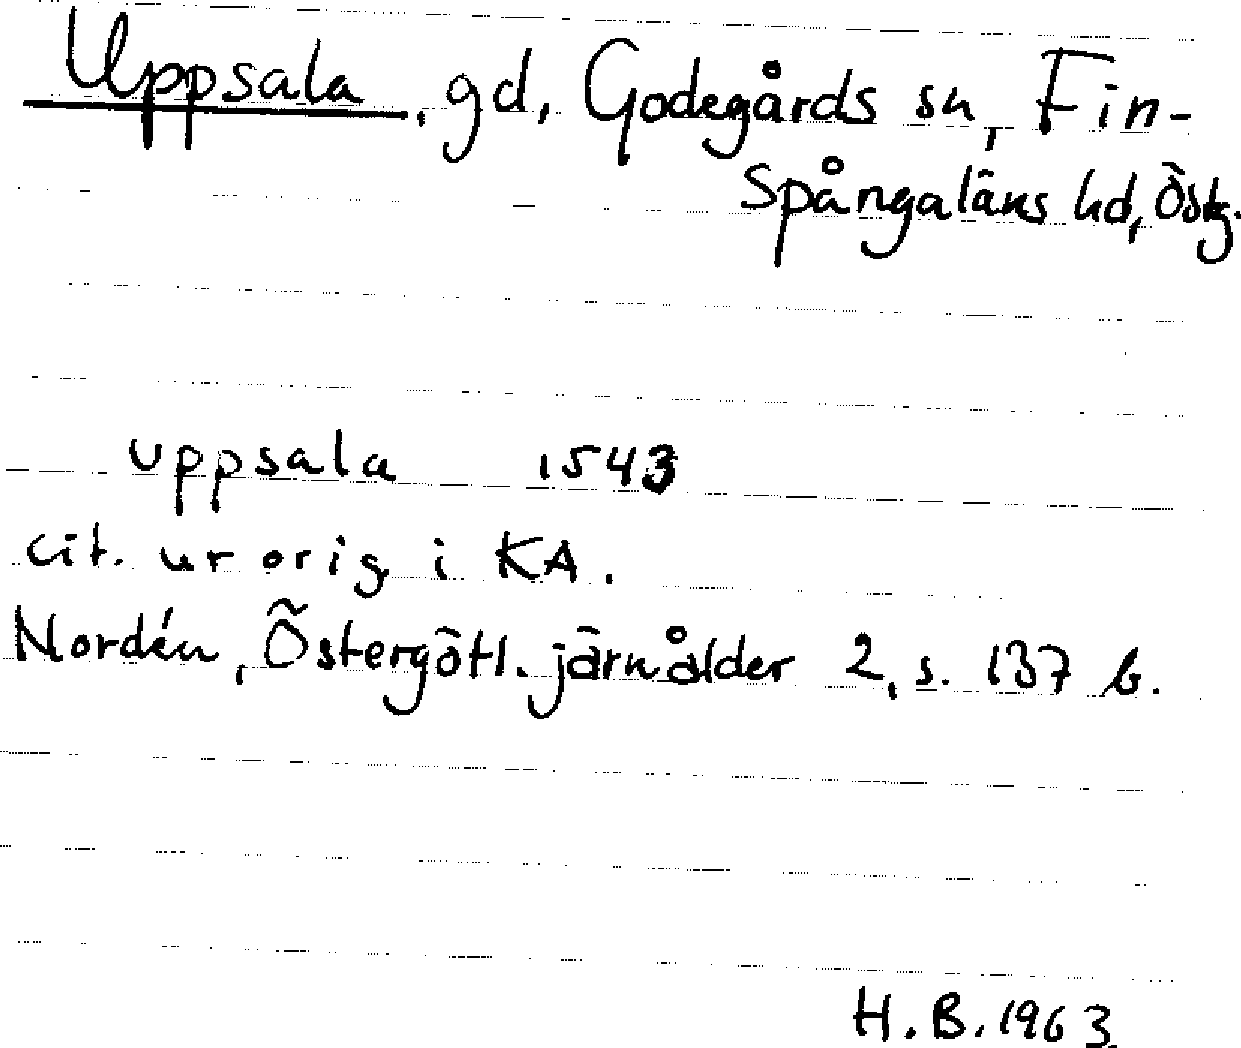 Uppsala, gd, Godegårds sn, Fin-
spångaläns hd, Östg.
uppsala 1543
cit. ur orig i KA.
Nordén, Östergötl. järnålder 2, s. 137 b.
H.B. 1963